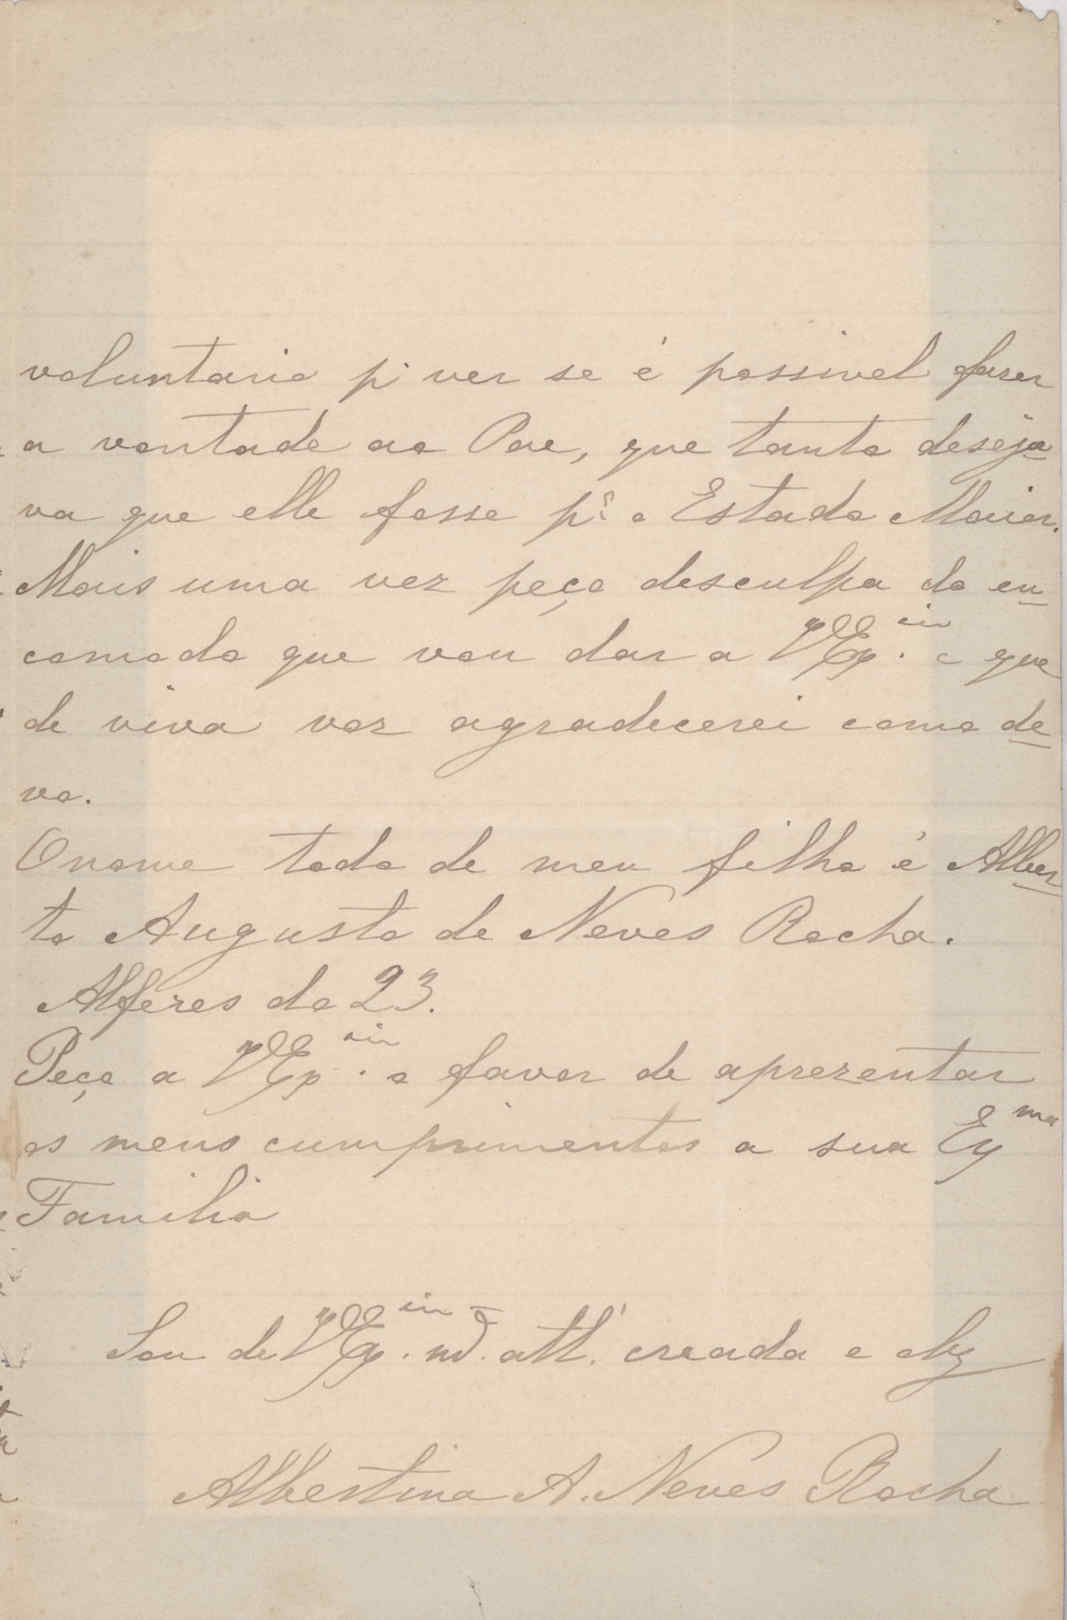 voluntario pª ver se é possivel faser
a vontade ao Pae, que tanto deseja-
va que elle fosse pª o Estado Maior.
Mais uma vez peço desculpa do en-
comodo que vou dar a VExª.cia e que
de viva voz agradecerei como de-
vo.
O nome todo de meu filho é Alber-
to Augusto de Neves Rocha.
Alferes do 23.
Peço a VEx.cia o favor de aprezentar
os meus cumprimentos a sua Exma
Familia
Sou de VEx.cia m.to att.ª creada e obg
Albertina A. Neves Rocha